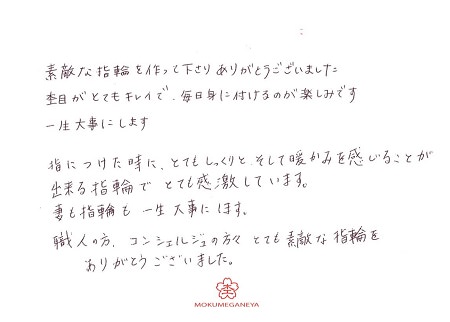 素敵な指輪を作って下さりありがとうございました
杢目がとてもキレイで、毎日身に付けるのが楽しみです
一生大事にします
指につけた時に、とてもしっくりと、そして暖かみを感じることが
出来る指輪でとても感激しています。
妻も指輪も一生大事にします。
職人の方、コンシェルジュの方々とても素敵な指輪を
ありがとうございました。
杢
MOKUMEGANEYA